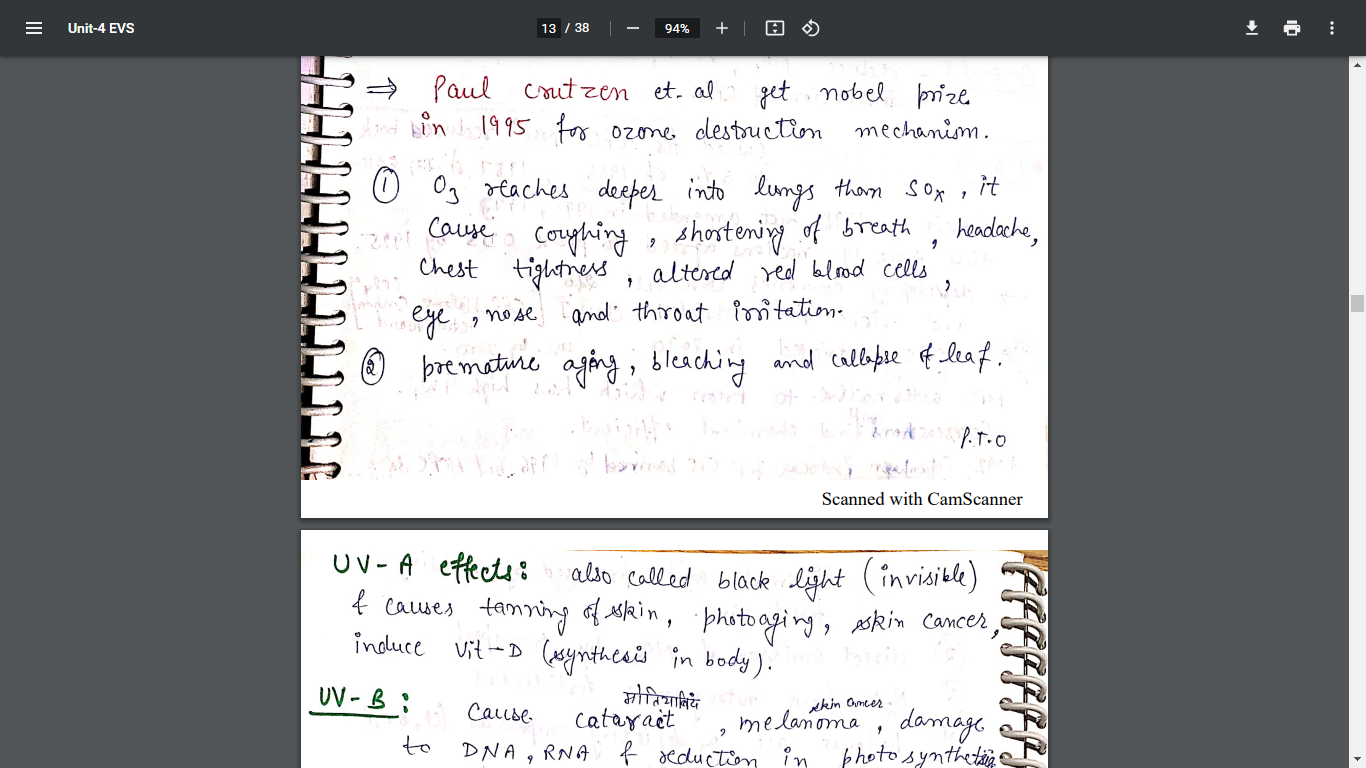 Unit-4 EVS
13 / 38
94%
⇒ Paul Crutzen et. al get nobel prize
in 1995 for ozone destruction mechanism.
① O₃ reaches deeper into lungs than SOx, it
cause coughing, shortening of breath, headache,
chest tightness, altered red blood cells,
eye, nose and throat irritation.
② premature aging, bleaching and collapse of leaf.
P.T.O
Scanned with CamScanner
UV-A effects: also called black light (invisible)
& causes tanning of skin, photoaging, skin cancer,
induce Vit-D (synthesis in body).
मोतियाबिंद skin cancer
UV-B: cause cataract, melanoma, damage
to DNA, RNA & reduction in photosynthesis